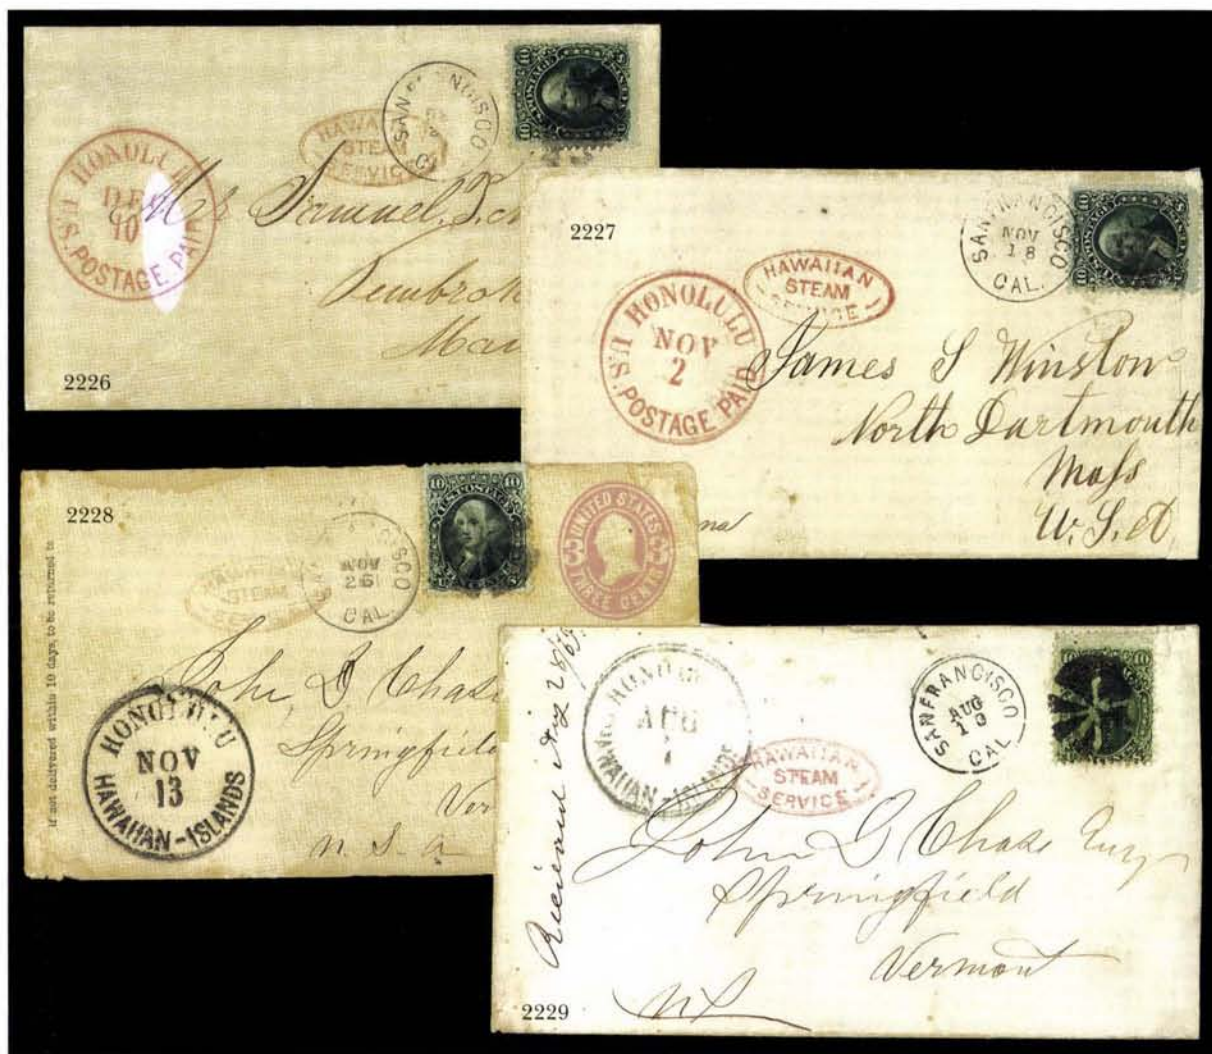 HONOLULU
DEC
10
U.S. POSTAGE PAID
HAWAIIAN
STEAM
SERVICE
SAN FRANCISCO
CAL.
U.S. POSTAGE
10
10
Samuel
Pembrok
Mai
2226
2227
HONOLULU
NOV
2
U.S. POSTAGE PAID
HAWAIIAN
STEAM
SERVICE
SAN FRANCISCO
NOV
18
CAL.
10
10
James S Winslow
North Dartmouth
Mass
U.S.A
2228
If not delivered within 10 days, to be returned to
HAWAIIAN
STEAM
SERVICE
NOV
26
CAL.
10
10
U.S. POSTAGE
UNITED STATES
THREE CENTS
3
3
John D Chase
Springfield
Ver
U.S.A
HONOLULU
NOV
13
HAWAIIAN-ISLANDS
Recieved Aug 28/69
HONOLULU
AUG
HAWAIIAN-ISLANDS
HAWAIIAN
STEAM
SERVICE
SAN FRANCISCO
AUG
CAL
10
10
John D Chase Esq
Springfield
Vermont
2229